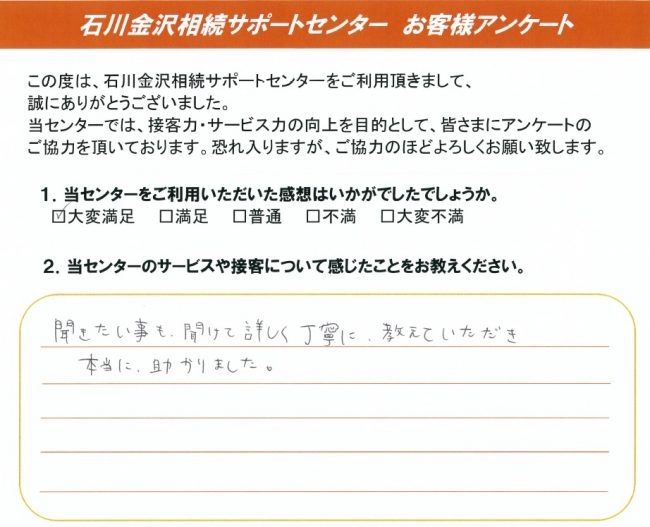 石川金沢相続サポートセンター　お客様アンケート
この度は、石川金沢相続サポートセンターをご利用頂きまして、
誠にありがとうございました。
当センターでは、接客力・サービス力の向上を目的として、皆さまにアンケートの
ご協力を頂いております。恐れ入りますが、ご協力のほどよろしくお願い致します。
１．当センターをご利用いただいた感想はいかがでしたでしょうか。
☑大変満足　□満足　□普通　□不満　□大変不満
２．当センターのサービスや接客について感じたことをお教えください。
聞きたい事も、聞けて詳しく丁寧に、教えていただき
本当に、助かりました。